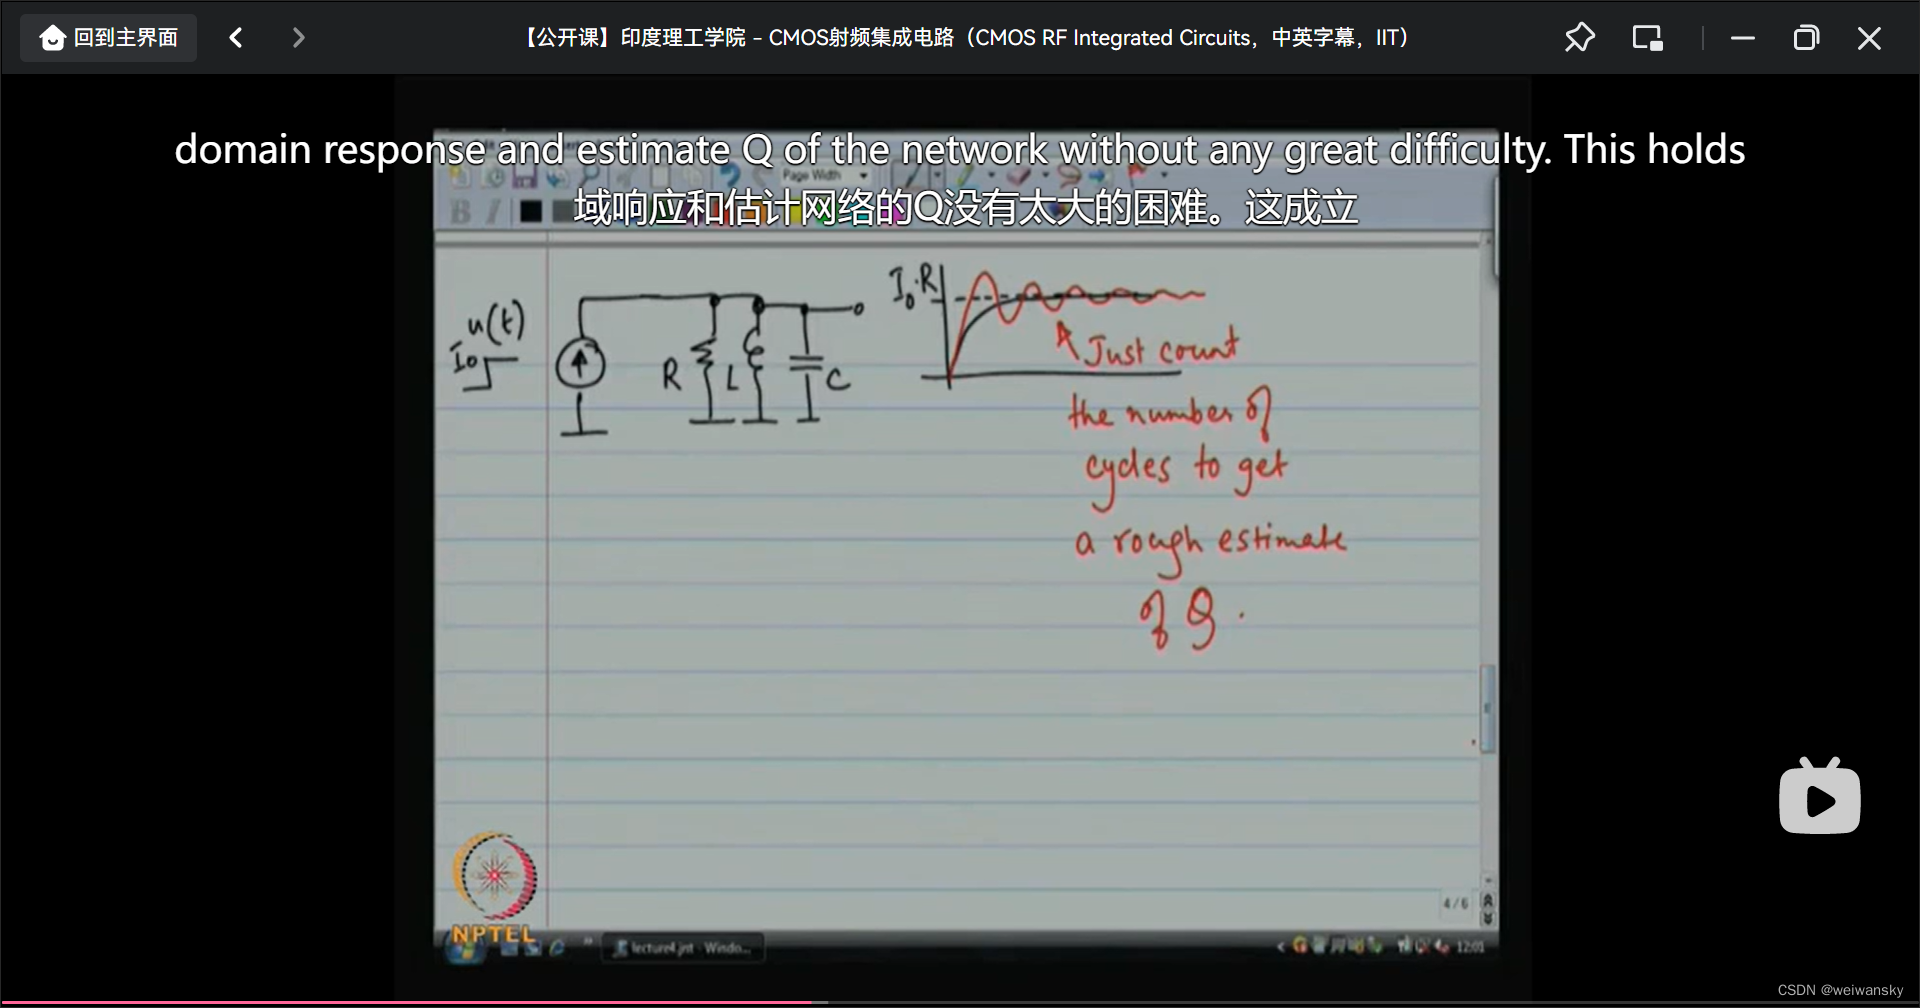 回到主界面
【公开课】印度理工学院 – CMOS射频集成电路（CMOS RF Integrated Circuits，中英字幕，IIT）
domain response and estimate Q of the network without any great difficulty. This holds
域响应和估计网络的Q没有太大的困难。这成立
Page Width
B I
u(t)
I₀
R L C
I₀·R
Just count
the number of
cycles to get
a rough estimate
of Q.
4/6
NPTEL
lecture4.jnt - Windo...
12:01
CSDN @weiwansky